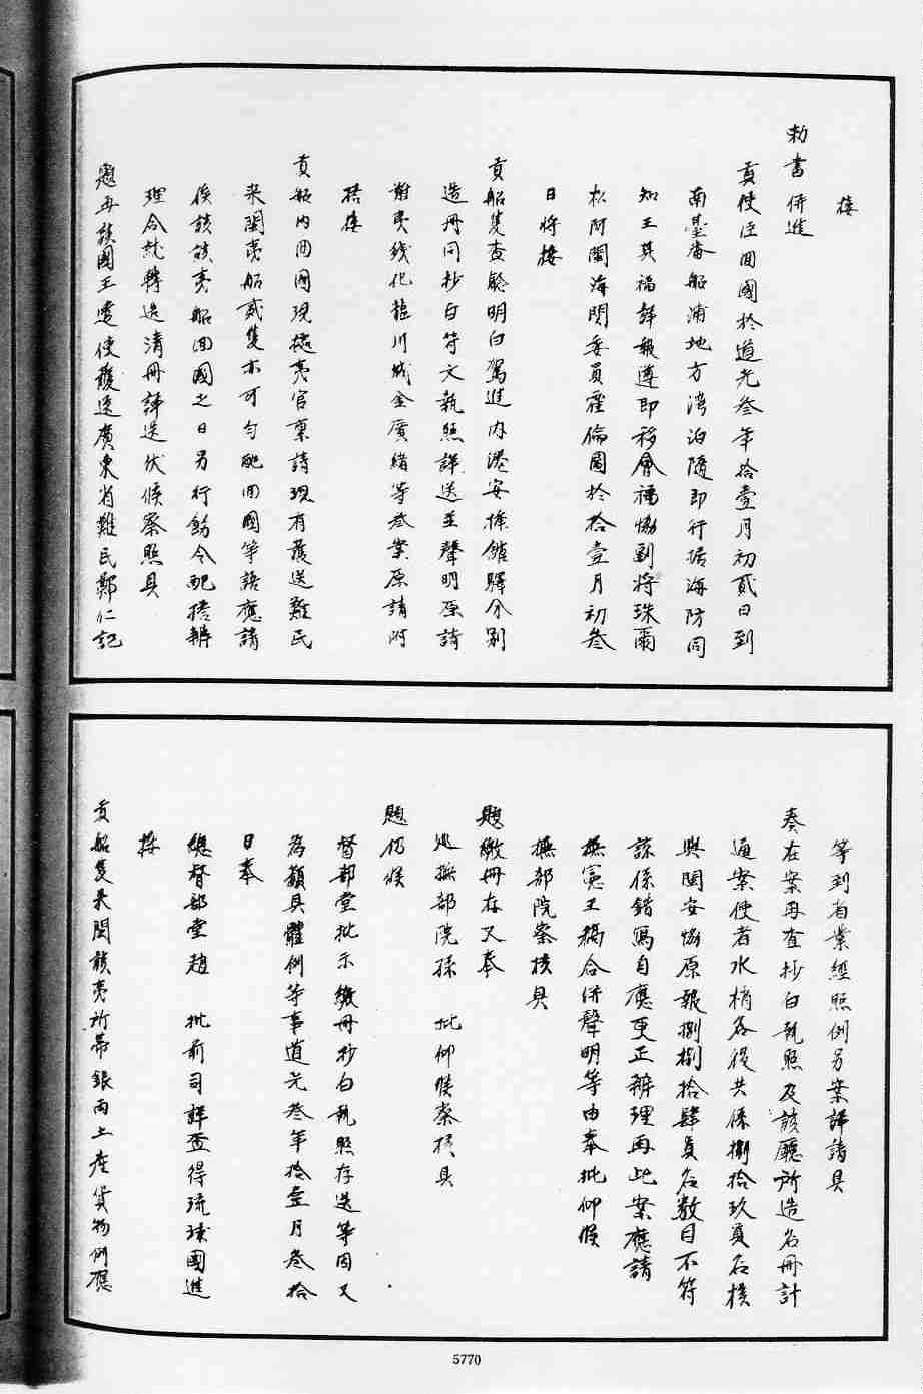 接
勅書併進
貢使往回國於道光叁年拾壹月初貳日到
南臺番船浦地方灣泊隨即行据海防同
知王其福詳報遵即移會福協副將珠爾
松阿閩海関委員霍倫圖於拾壹月初叁
日將接
貢船隻查驗明白駕進内港安揷舘驛分别
造册同抄白符文執照詳送並聲明原請
附
搭接
貢船内回國現據夷官稟請現有護送難民
来閩夷船貳隻亦可勻配回國等語應請
俟該夷船回國之日另行飭令配搭辦
理合就轉造清册詳送伏候察照具
題再該國王遣使護送廣東省難民鄭仁記
等到省業經照例另案詳請具
奏在案再查抄白執照及該廳所造名册計
通案使者水梢各役共係捌拾玖員名核
與閩安協原報捌拾肆員名数目不符
諒係錯寫自應更正辦理再此案應請
撫憲主稿合併聲明等由奉批仰候
撫部院察核具
題繳册存又奉
廵撫部院孫　批仰候察核具
題仍候
督部堂批示繳册抄白執照存送等因又
為籲具體例等事道光叁年拾壹月叁拾
日奉
總督部堂趙　批前司詳查得琉球國進
接
貢船隻来閩該夷所帶銀両土產貨物例應
5770